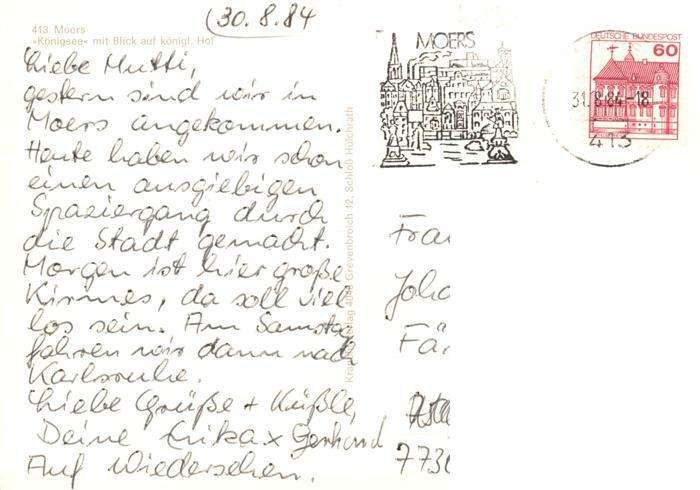 (30.8.84
413 Moers
»Königsee« mit Blick auf königl. Hof
Liebe Mutti,
gestern sind wir in
Moers angekommen.
Heute haben wir schon
einen ausgiebigen
Spaziergang durch
die Stadt gemacht.
Morgen ist hier große
Kirmes, da soll viel
los sein. Am Samstag
fahren wir dann nach
Karlsruhe.
Liebe Grüße + Küßle,
Deine Erika x Gerhard
Auf Wiedersehen.
Grevenbroich 12, Schloß Hülchrath
MOERS
DEUTSCHE BUNDESPOST
60
31.8.84-18
413
Frau
Joha
Fär
773